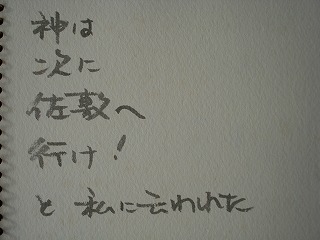 神は
次に
佐敷へ
行け!
と 私に言われた